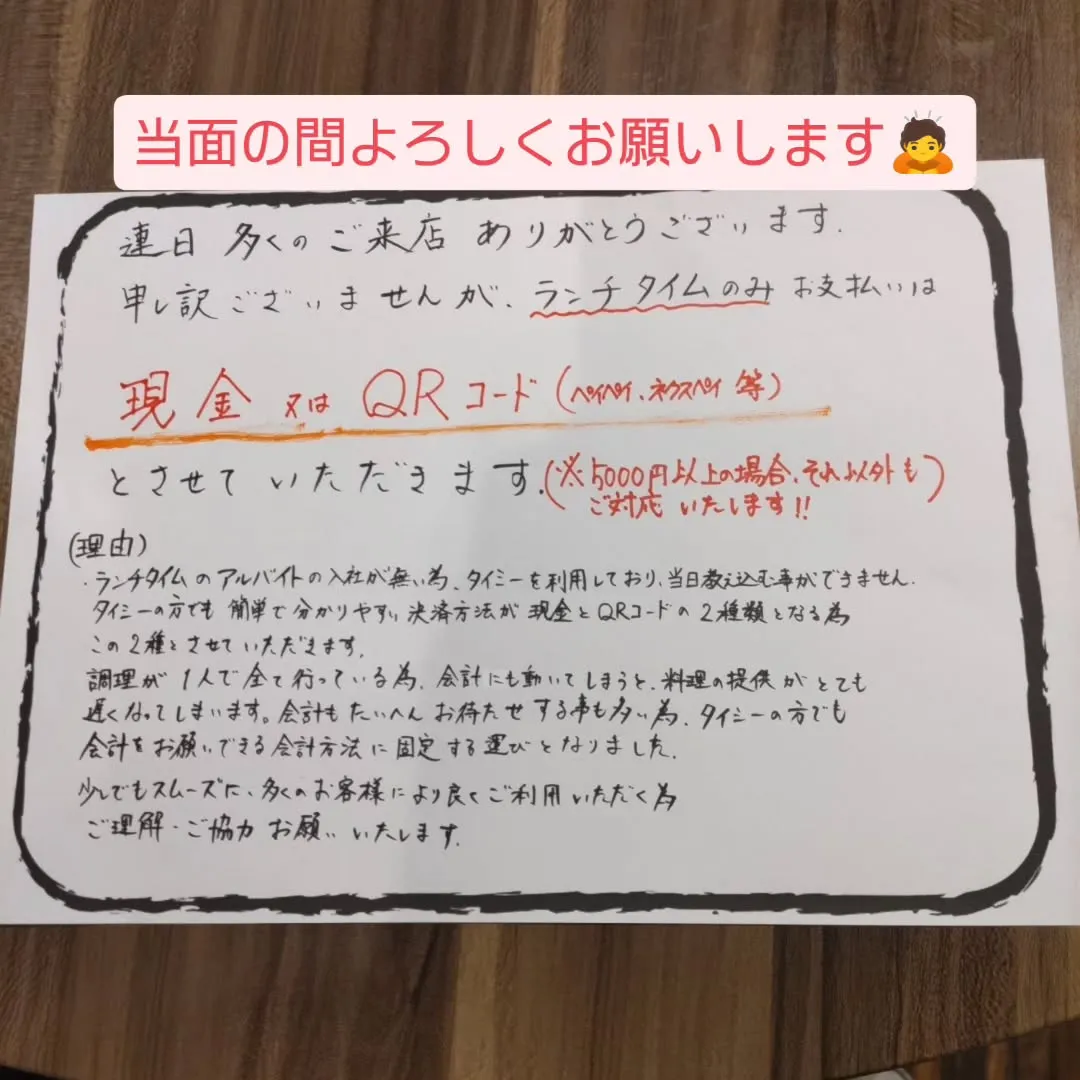 当面の間よろしくお願いします🙇
連日 多くのご来店 ありがとうございます.
申し訳ございませんが、ランチタイムのみ お支払いは
現金 又は QRコード(ペイペイ、ネクスペイ 等)
とさせていただきます.(※5000円以上の場合、それ以外も
ご対応いたします!!)
(理由)
・ランチタイムのアルバイトの入社が無い為、タイミーを利用しており、当日教え込む事ができません.
タイミーの方でも 簡単で分かりやすい決済方法が 現金とQRコードの2種類となる為
この2種とさせていただきます.
調理が1人で全て行っている為、会計にも動いてしまうと、料理の提供がとても
遅くなってしまいます。会計もたいへんお待たせする事も多い為、タイミーの方でも
会計をお願いできる会計方法に固定する運びとなりました.
少しでもスムーズに、多くのお客様により良くご利用いただく為
ご理解・ご協力お願いいたします.